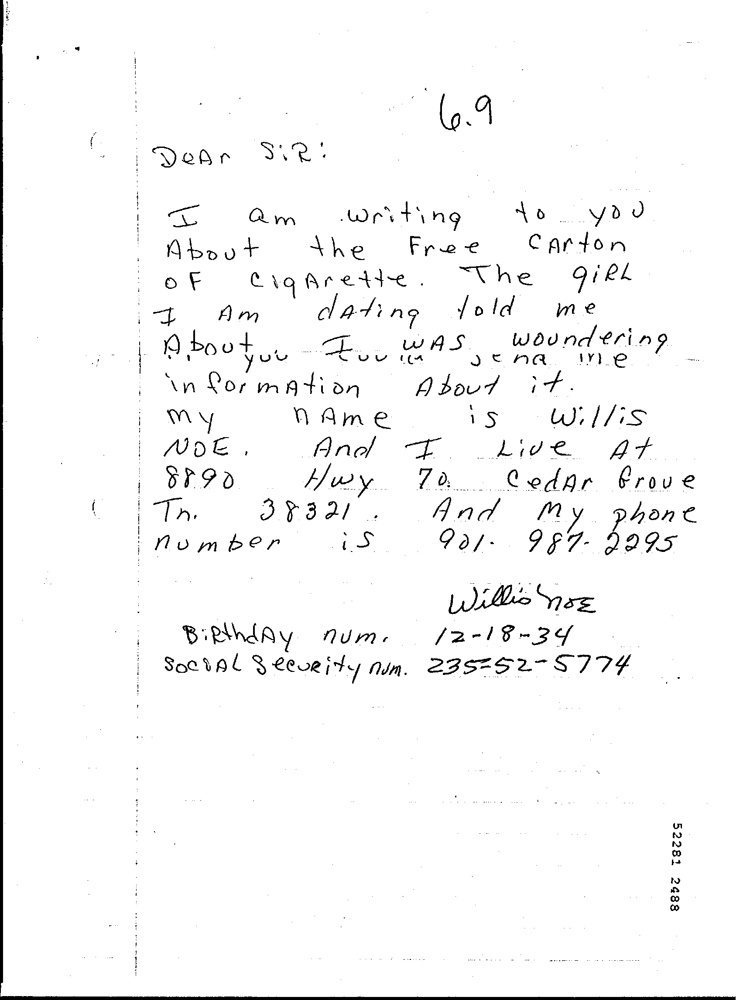 6.9
DeAr SiR:
I am writing to you
About the Free CArton
oF CigArette. The giRL
I Am dAting told me
About I WAS woundering
you send me
informAtion About it.
my nAme is Willis
NOE. And I Live At
8890 Hwy 70. CedAr Grove
Tn. 38321. And My phone
number is 901-987-2295
Willis NOE
BiRthdAy num. 12-18-34
SocsAL SecuRity num. 235-52-5774
52281 2488